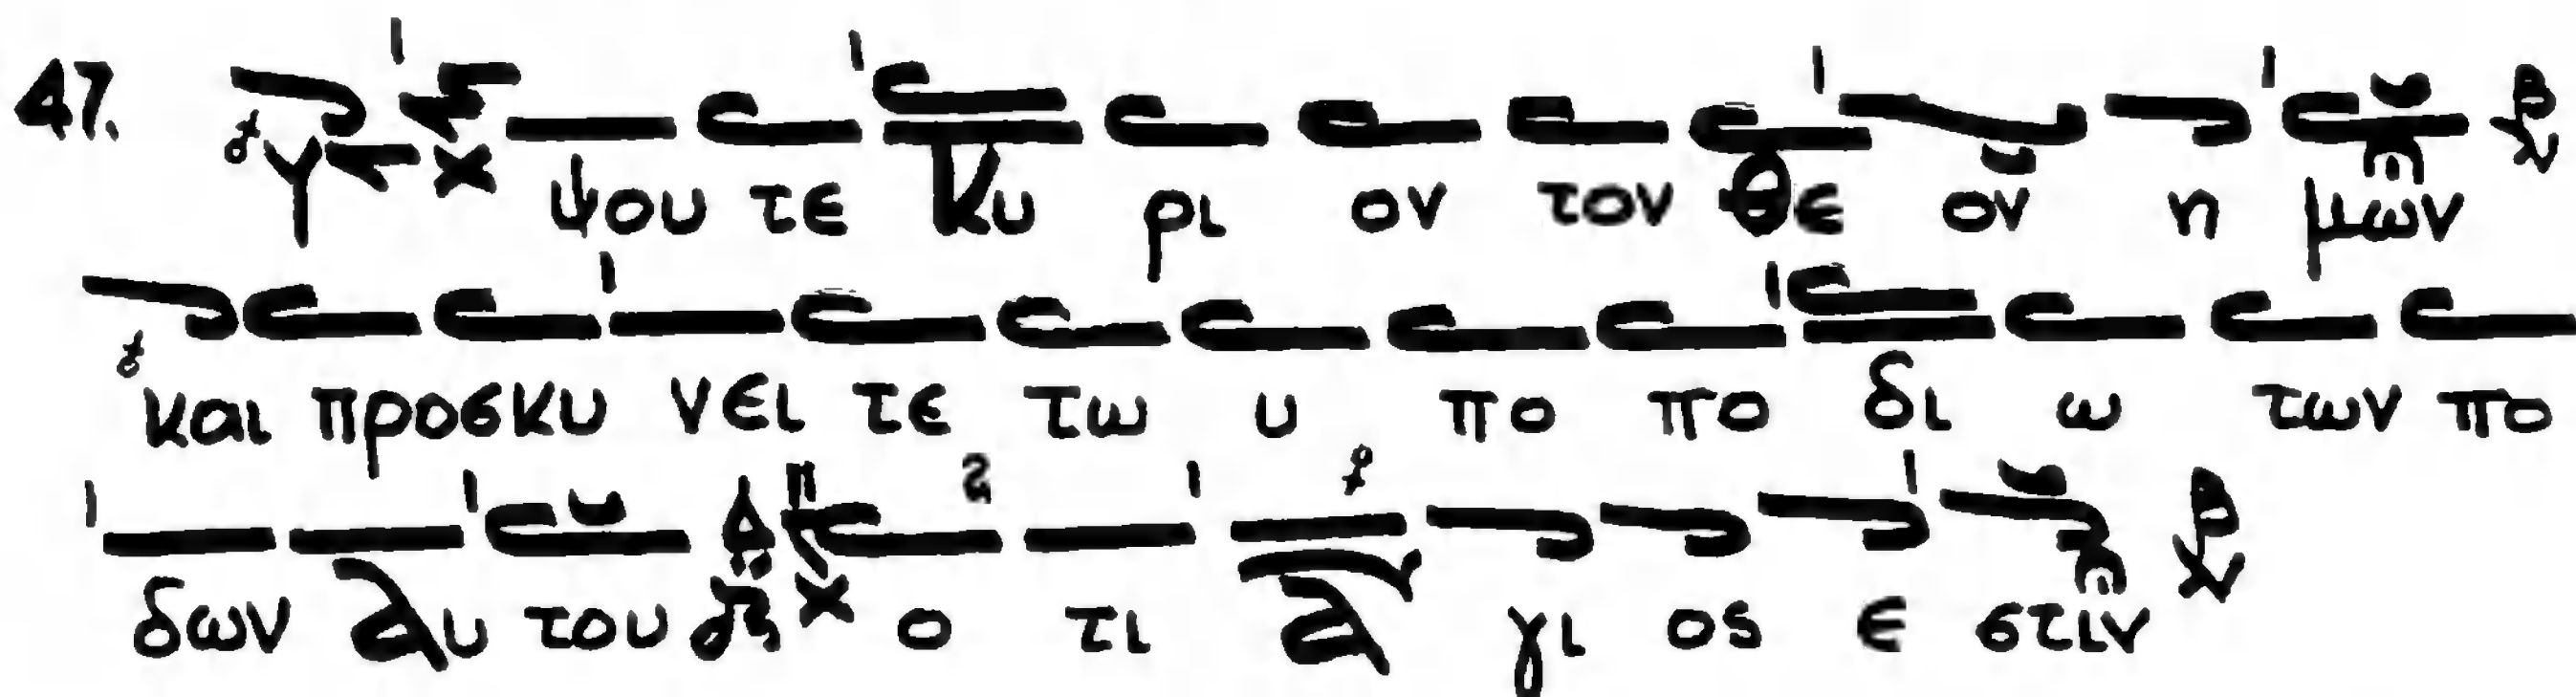 47. Υ ψου τε Κυ ρι ον τον Θε ον η μων
και προσκυ νει τε τω υ πο πο δι ω των πο
δων Αυ του ο τι Α γι ος ε στιν